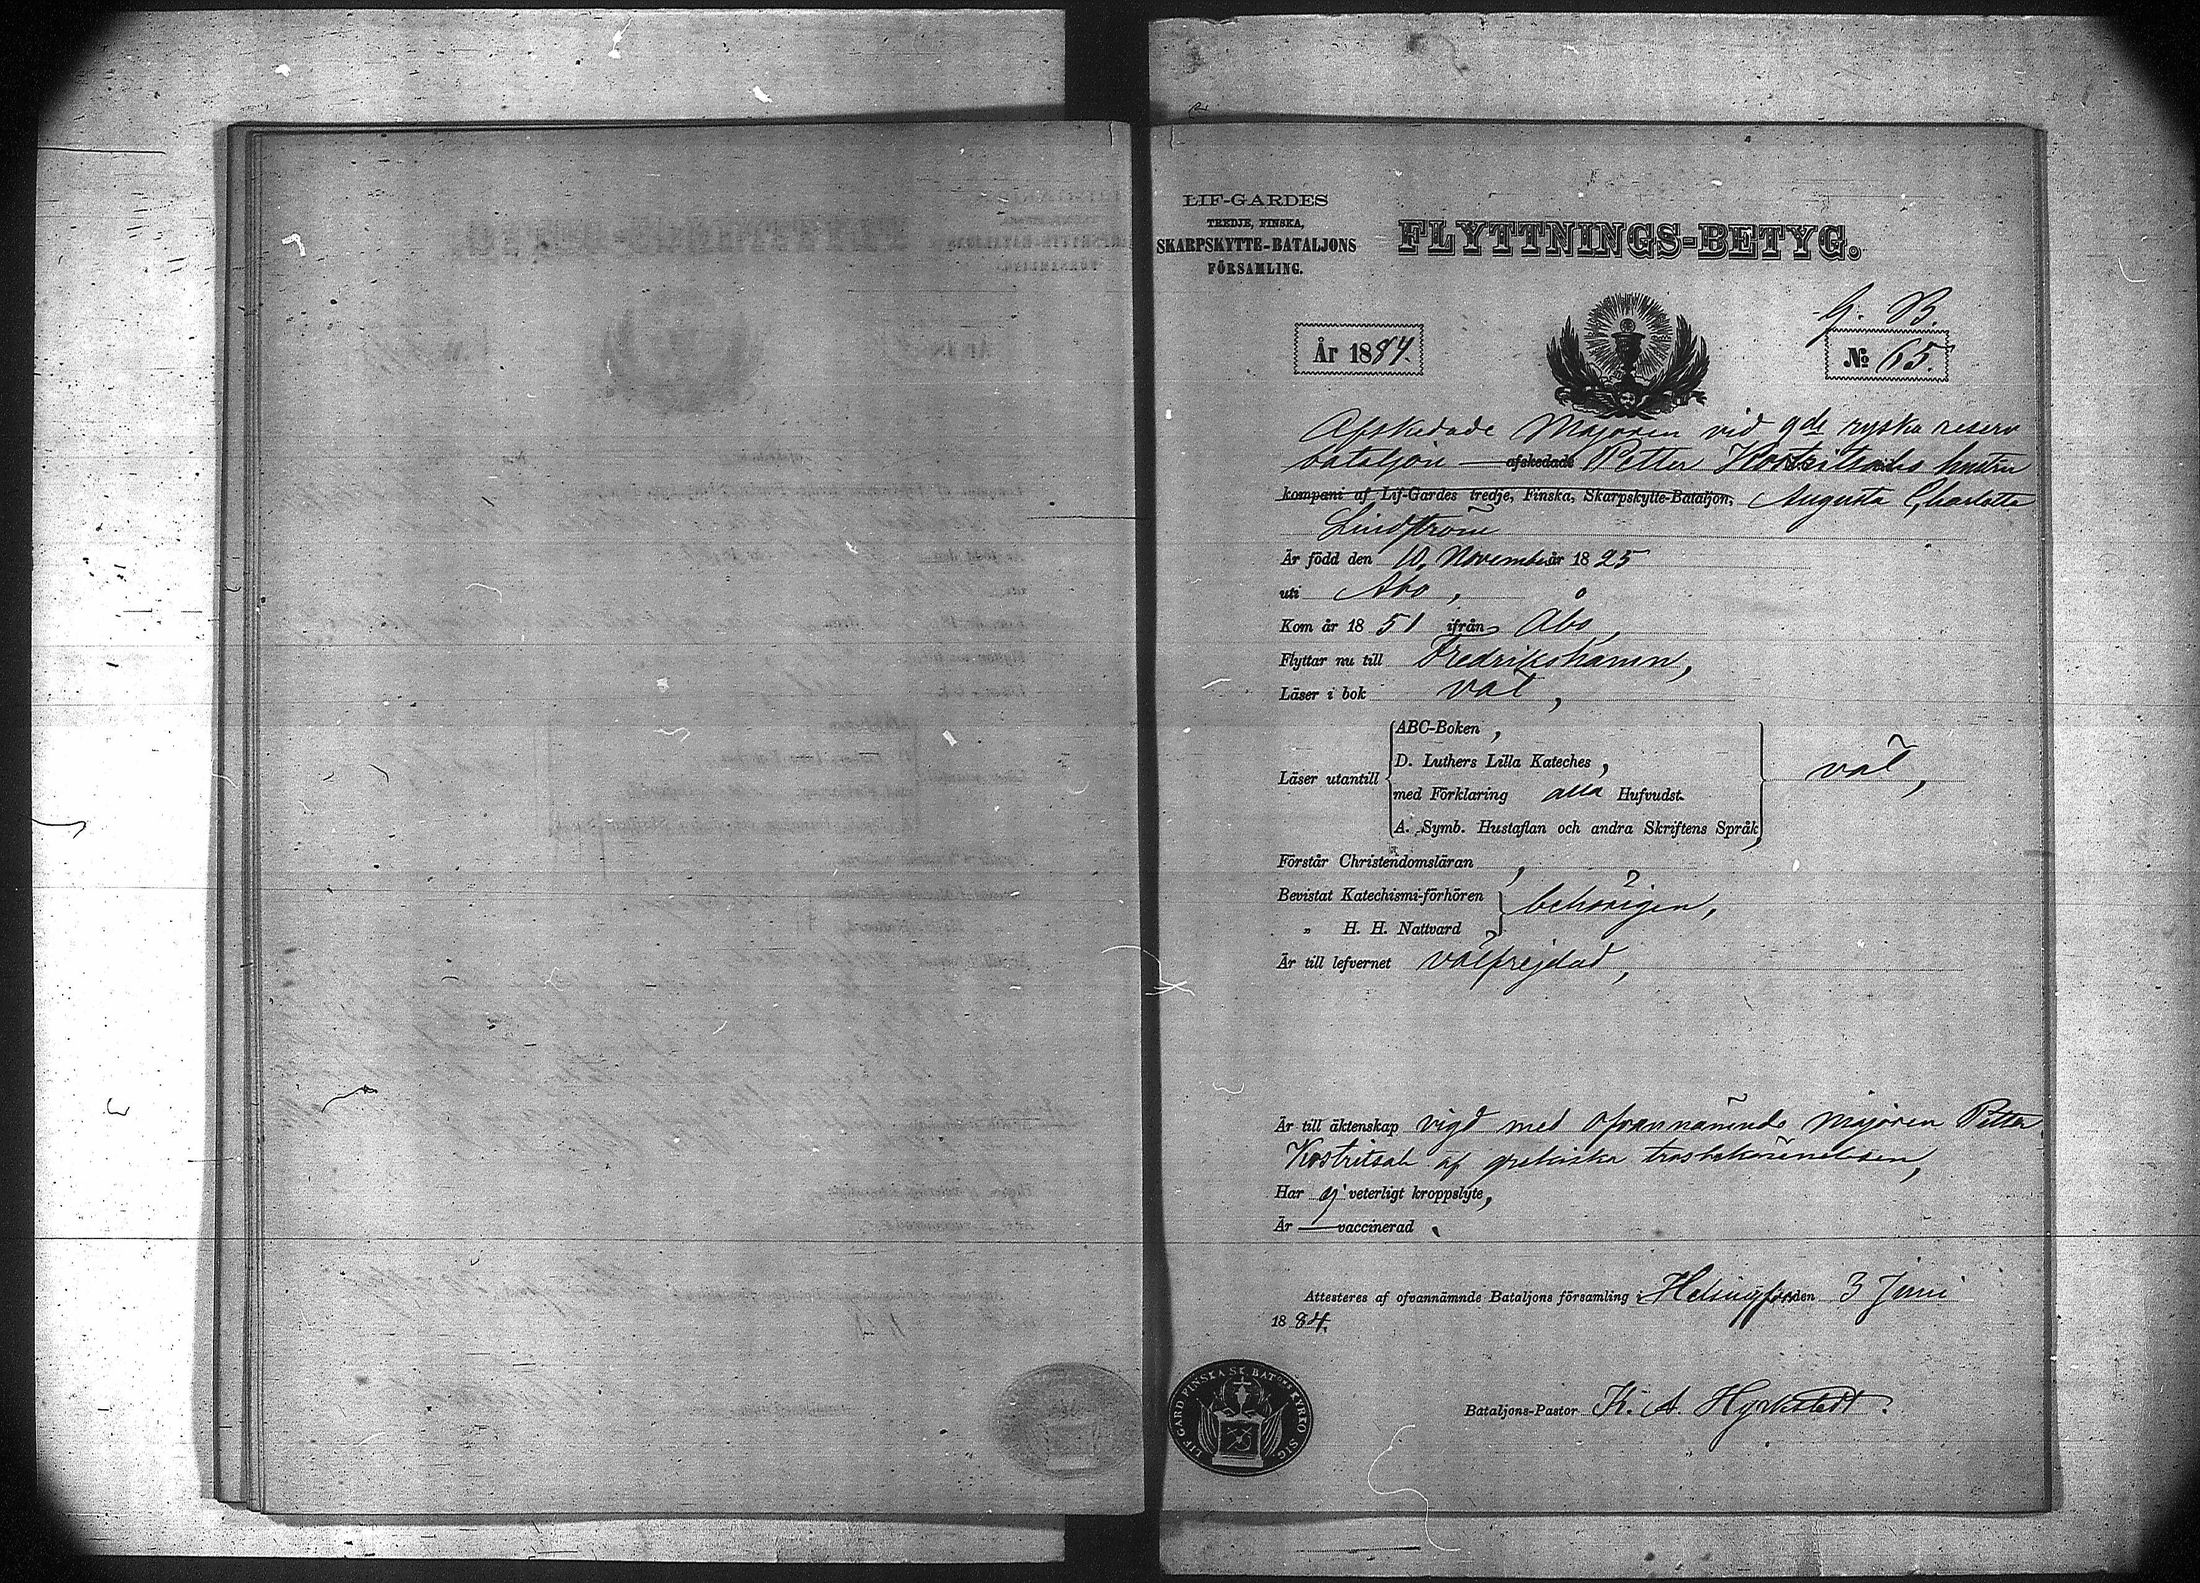 LIF-GARDES
TREDJE, FINSKA,
SKARPSKYTTE-BATALJONS
FÖRSAMLING.
FLYTTNINGS-BETYG.
G. B.
År 1884.
№ 65.
Afskedade Majoren vid 9de ryska reserv
bataljon afskedade Petter Kostritsohs hustru
kompani af Lif-Gardes tredje, Finska, Skarpskytte-Bataljon, Augusta Charlotta
Lindström
Är född den 10 November år 1825
uti Åbo,
Kom år 1851 ifrån Åbo,
Flyttar nu till Fredrikshamn,
Läser i bok väl,
ABC-Boken,
D. Luthers Lilla Kateches,
Läser utantill väl,
med Förklaring alla Hufvudst.
A. Symb. Hustaflan och andra Skriftens Språk
Förstår Christendomsläran,
Bevistat Katechismi-förhören behörigen,
„ H. H. Nattvard
Är till lefvernet välfrejdad,
Är till äktenskap vigd med ofvannämnde Majoren Petter
Kostritsoh af grekiska trosbekännelsen,
Har ej veterligt kroppslyte,
Är — vaccinerad.
Attesteras af ofvannämnde Bataljons församling i Helsingfors den 3 Juni
1884.
LIF GARD FINSKA SK. BAT:ons KYRKO SIG.
Bataljons-Pastor K. A. Hyrkstedt.